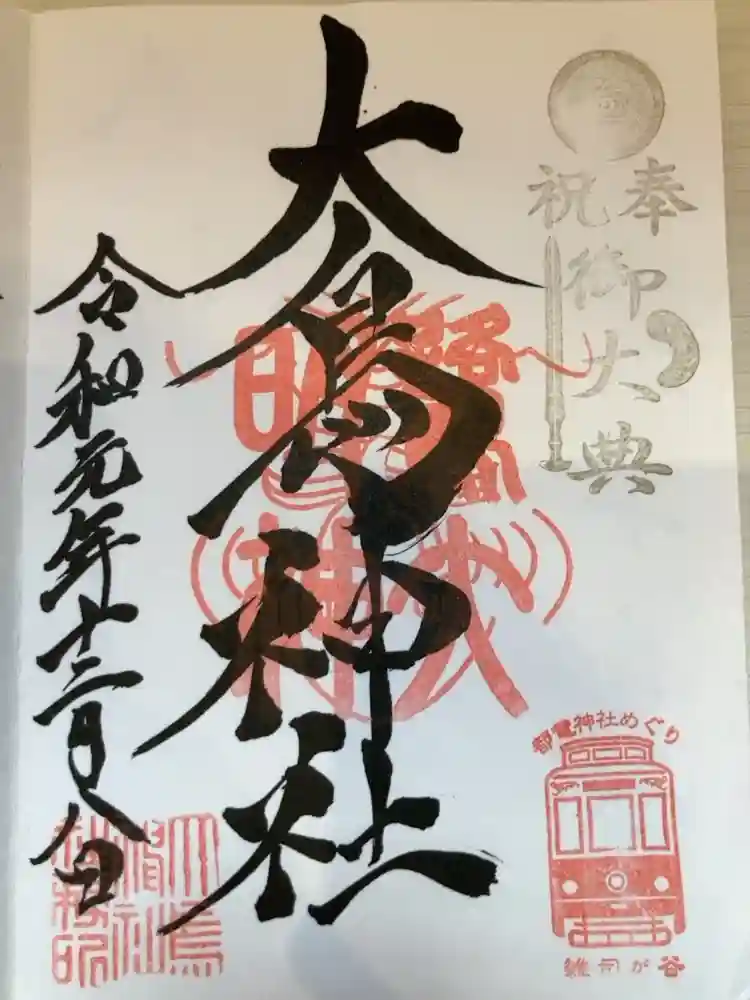 奉祝
御大典
大鳥神社
令和元年十二月八日
都電神社めぐり
雑司が谷